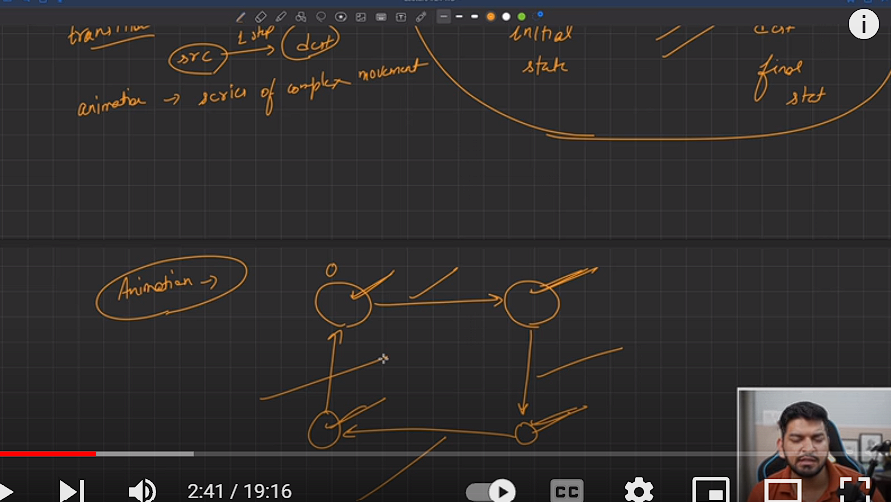 transition
1 step
src
dest
animation → series of complex movement
initial
state
dest
final
stat
Animation →
0
2:41 / 19:16
CC
i